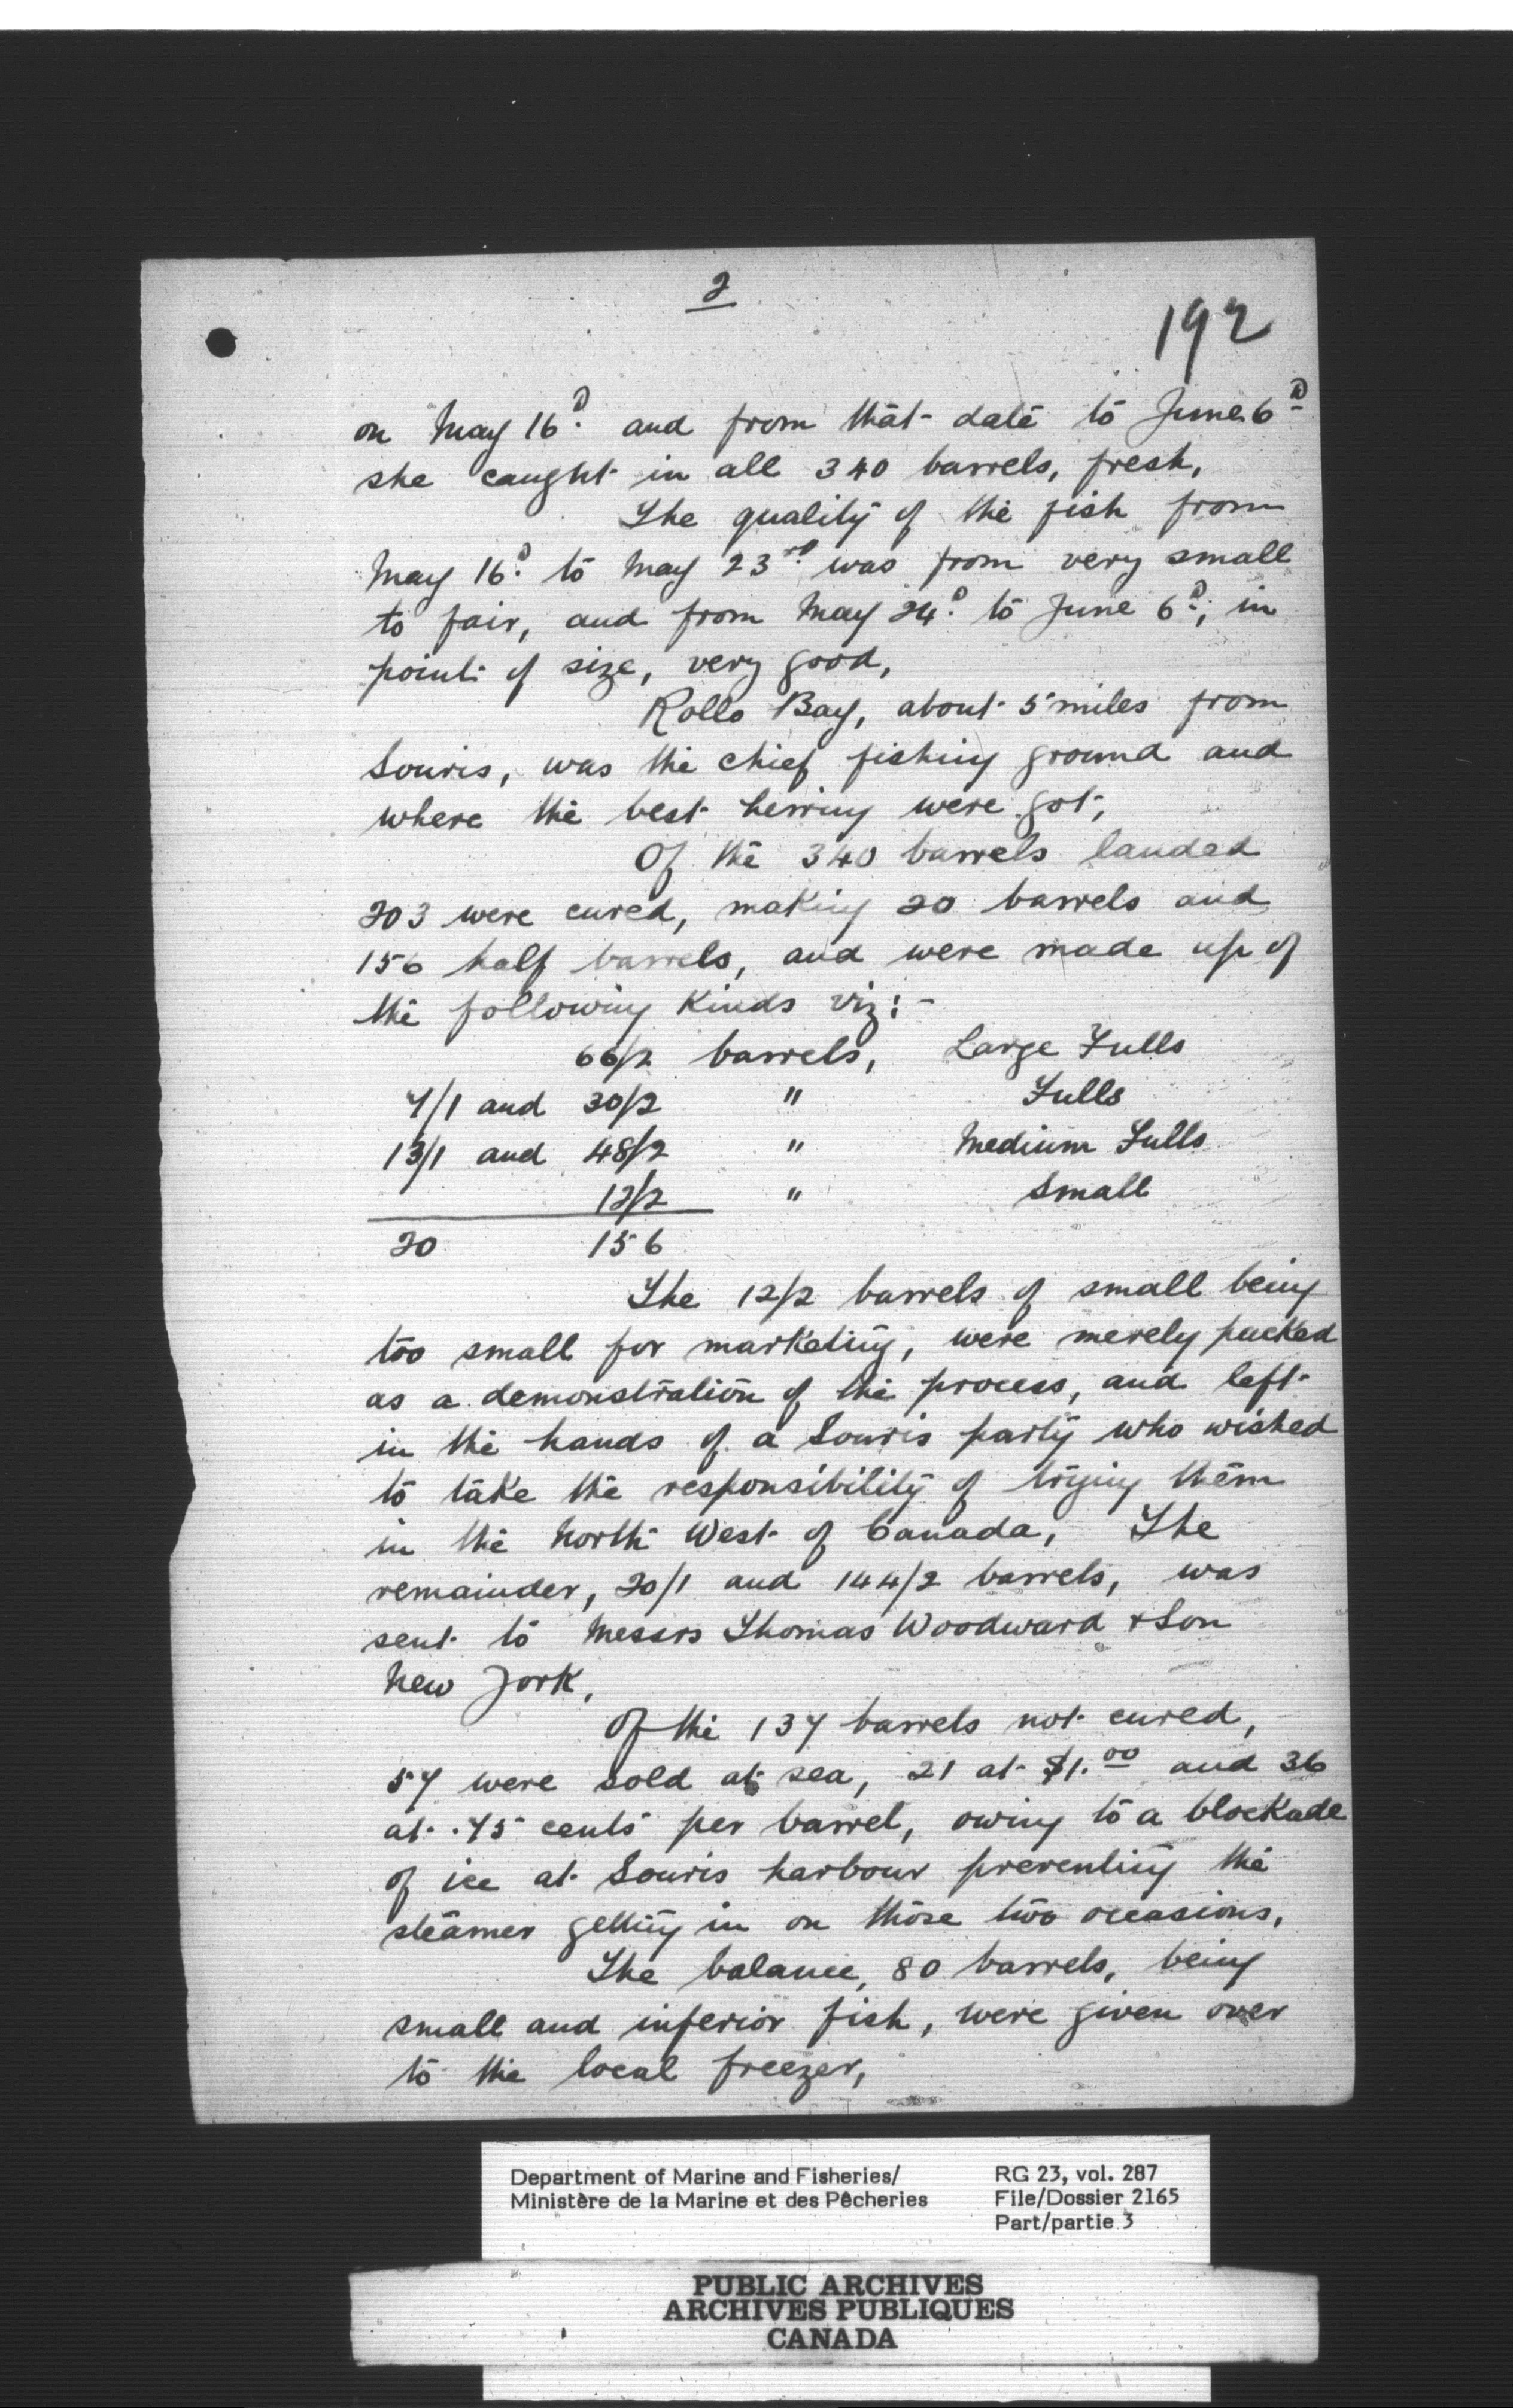 2
192
on May 16th and from that date to June 6th
she caught in all 340 barrels, fresh,
The quality of the fish from
May 16th to May 23rd was from very small
to fair, and from May 24th to June 6th, in
point of size, very good,
Rollo Bay, about 5 miles from
Souris, was the chief fishing ground and
where the best herring were got,
Of the 340 barrels landed
203 were cured, making 20 barrels and
156 half barrels, and were made up of
the following kinds viz:-
66/2 barrels, Large Fulls
7/1 and 30/2 " Fulls
13/1 and 48/2 " Medium Fulls
12/2 " Small
20 156
The 12/2 barrels of small being
too small for marketing, were merely packed
as a demonstration of the process, and left
in the hands of a Souris party who wished
to take the responsibility of trying them
in the North West of Canada, The
remainder, 20/1 and 144/2 barrels, was
sent to Messrs Thomas Woodward & Son
New York,
Of the 137 barrels not cured,
57 were sold at sea, 21 at $1.00 and 36
at .75 cents per barrel, owing to a blockade
of ice at Souris harbour preventing the
steamer getting in on those two occasions,
The balance, 80 barrels, being
small and inferior fish, were given over
to the local freezer,
Department of Marine and Fisheries/
Ministère de la Marine et des Pêcheries
RG 23, vol. 287
File/Dossier 2165
Part/partie 3
PUBLIC ARCHIVES
ARCHIVES PUBLIQUES
CANADA